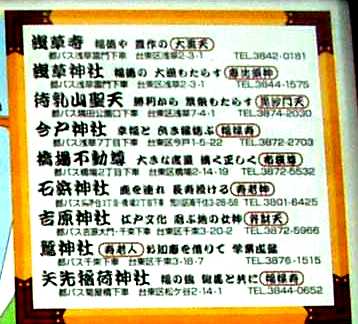 浅草寺 福徳や 豊作の 大黒天
都バス浅草雷門下車 台東区浅草2-3-1 TEL.3842-0181
浅草神社 福徳の 大漁もたらす 恵比須神
都バス浅草雷門下車 台東区浅草2-3-1 TEL.3844-1575
待乳山聖天 勝利から もたらす 毘沙門天
都バス隅田公園口下車 台東区浅草7-4-1 TEL.3874-2030
今戸神社 幸福と 福禄寿
都バス浅草7丁目下車 台東区今戸1-5-22 TEL.3872-2703
橋場不動尊 大きな度量 清く正しく 布袋尊
都バス橋場2丁目下車 台東区橋場2-14-19 TEL.3872-5532
石浜神社 鹿を連れ 長寿授ける 寿老神
荒川区南千住3-28-58 TEL.3801-6425
吉原神社 江戸文化 偲ぶ地の女神 弁財天
都バス吉原大門・千束下車 台東区千束3-20-2 TEL.3872-5966
鷲神社 寿老人 お知恵を借りて 学業成就
都バス千束下車 台東区千束3-18-7 TEL.3876-1515
矢先稲荷神社 福の徳 共に 福禄寿
都バス菊屋橋下車 台東区松ケ谷2-14-1 TEL.3844-0652